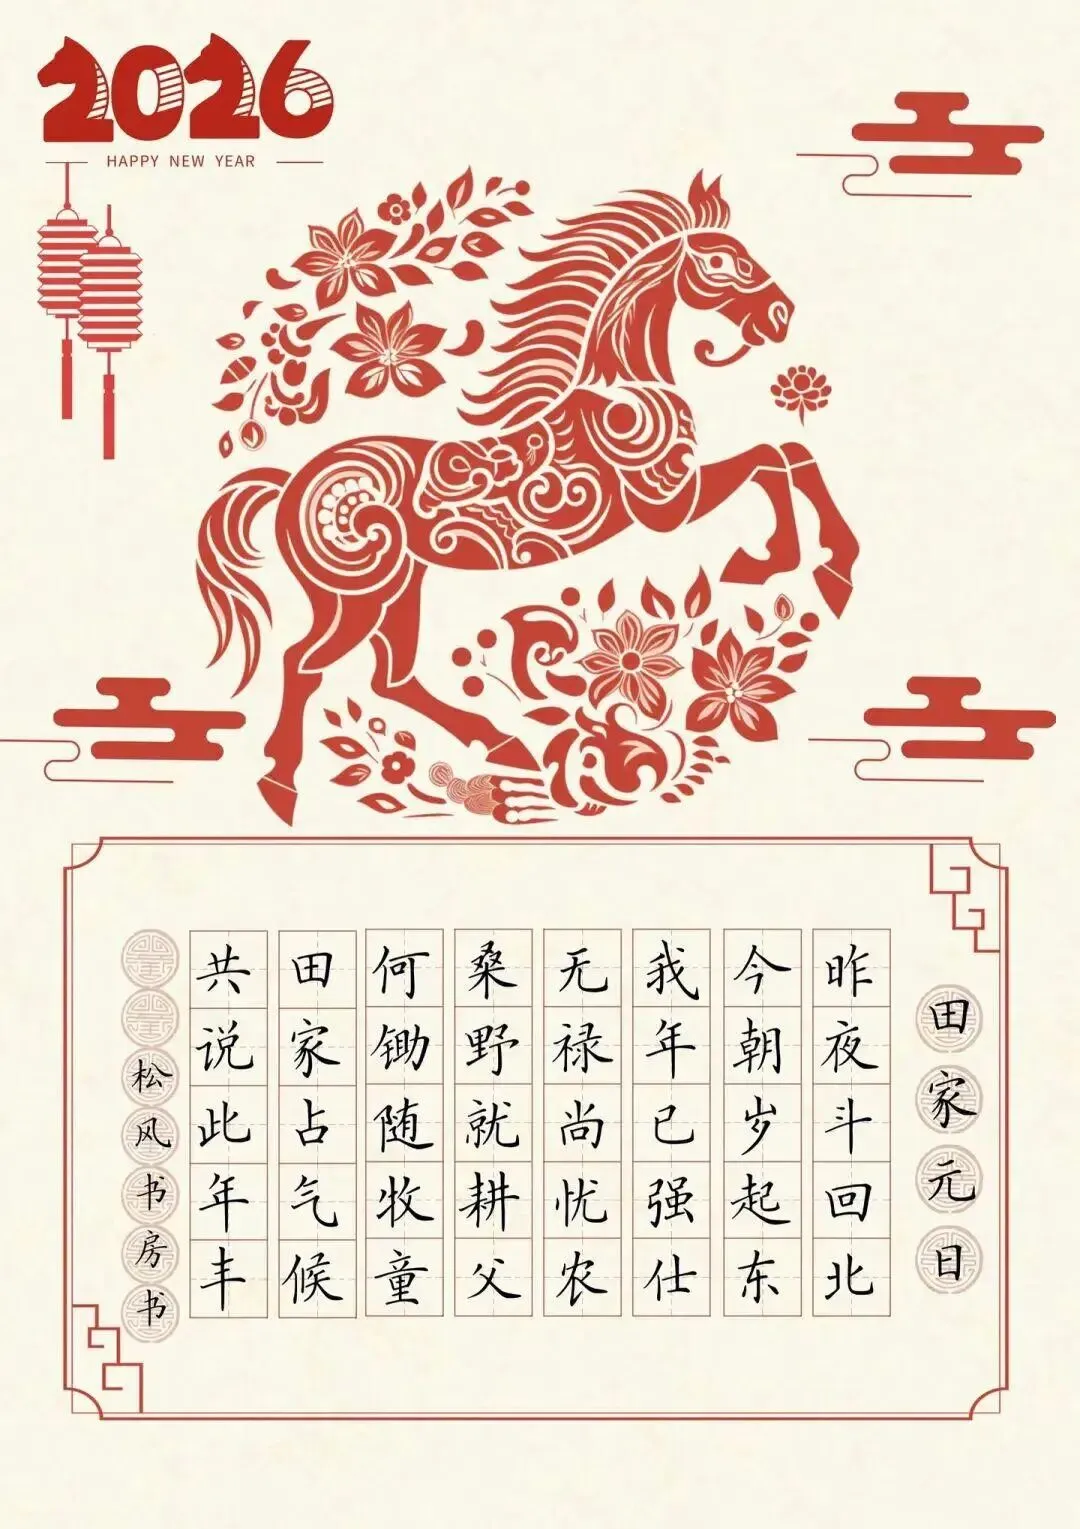 2026
HAPPY NEW YEAR
田家元日
昨夜斗回北
今朝岁起东
我年已强仕
无禄尚忧农
桑野就耕父
何锄随牧童
田家占气候
共说此年丰
松风书房书